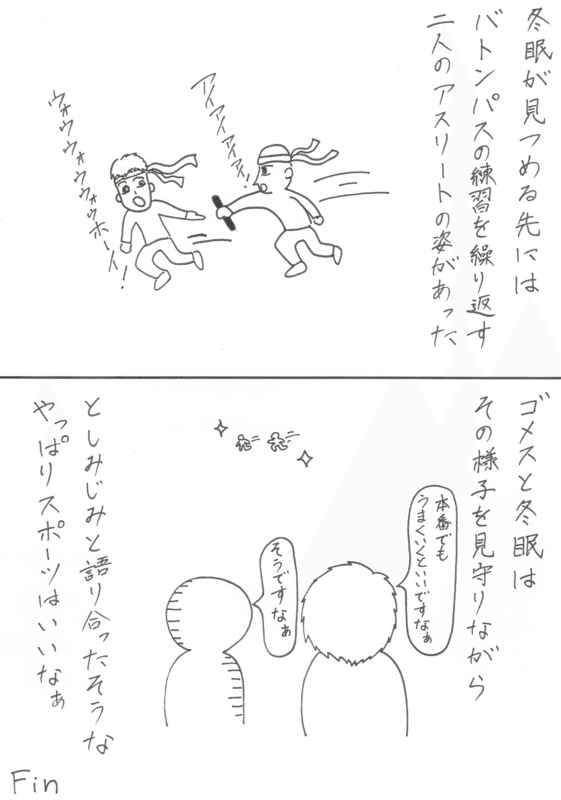 冬眠が見つめる先には
バトンパスの練習を繰り返す
二人のアスリートの姿があった
アイアイアイアイ!
ウォウウォウウォウホーイ!
ゴメスと冬眠は
その様子を見守りながら
本番でも
うまくいくといいですなぁ
そうですなぁ
としみじみと語り合ったそうな
やっぱりスポーツはいいなぁ
Fin